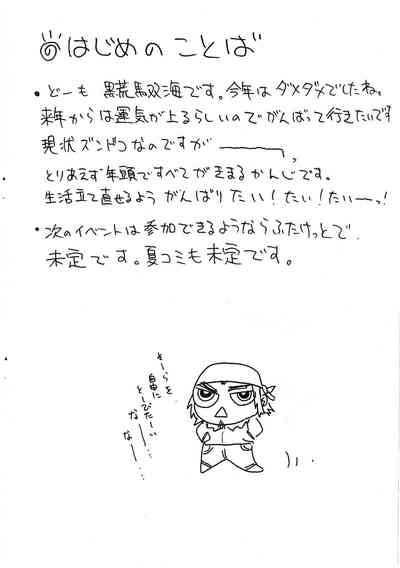 はじめのことば
・どーも 黒荒馭海です。今年はダメダメでしたね。
来年からは運気が上るらしいのでがんばって行きたいです
現状ズンドコなのですが――――っ
とりあえず年頭ですべてがきまるかんじです。
生活立て直せるようがんばりたい!たい!たいーっ!
・次のイベントは参加できるようならふたけっとで、
未定です。夏コミも未定です。
そーらを
自由に
とーびたーい
なー…
なー…